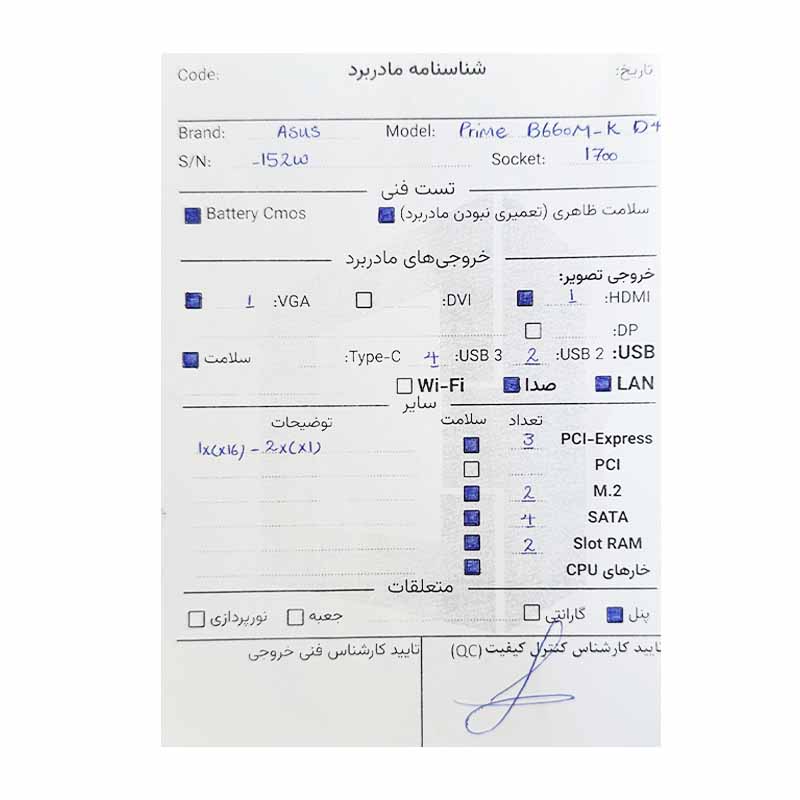 Code: شناسنامه مادربرد تاریخ:
Brand: ASUS Model: Prime B660M-K D4
S/N: -152W Socket: 1700
تست فنی
سلامت ظاهری (تعمیری نبودن مادربرد) Battery Cmos
خروجی‌های مادربرد
خروجی تصویر:
HDMI: 1 DVI: VGA: 1
DP:
USB: USB 2: 2 USB 3: 4 Type-C: سلامت
LAN صدا Wi-Fi
سایر
تعداد سلامت توضیحات
PCI-Express 3 1x(x16) - 2x(x1)
PCI
M.2 2
SATA 4
Slot RAM 2
خارهای CPU
متعلقات
پنل گارانتی جعبه نورپردازی
تایید کارشناس کنترل کیفیت (QC) تایید کارشناس فنی خروجی